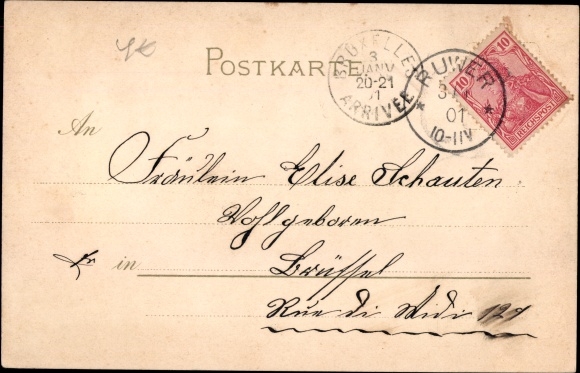 POSTKARTE
BRUXELLES
3
JANV
20-21
ARRIVEE
RUWER
01
10-11V
10
10
REICHSPOST
An
Fräulein Elise Schauten
Wohlgeboren
in Brüssel
Rue di Midi 127